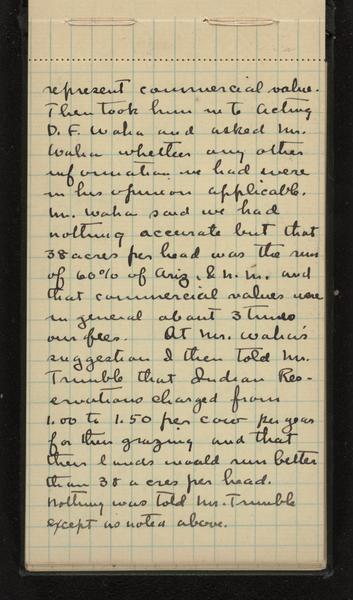 represent commercial value.
Then took him in to Acting
D. F. Waha and asked Mr.
Waha whether any other
information we had were
in his opinion applicable.
Mr. Waha said we had
nothing accurate but that
38 acres per head was the run
of 60% of Ariz. & N. M. and
that commercial values were
in general about 3 times
our fees. At Mr. Waha's
suggestion I then told Mr.
Trumble that Indian Res-
ervations charged from
1.00 to 1.50 per cow per year
for their grazing and that
their lands would run better
than 38 acres per head.
Nothing was told Mr. Trumble
except as noted above.